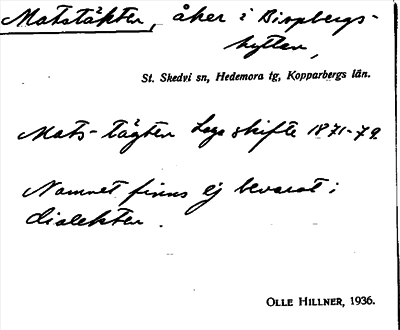 Matstäkten, åker i Bispbergs-
hyttan,
St. Skedvi sn, Hedemora tg, Kopparbergs län.
Mats-tägten Laga skifte 1871-79.
Namnet finns ej bevarat i
dialekten.
OLLE HILLNER, 1936.